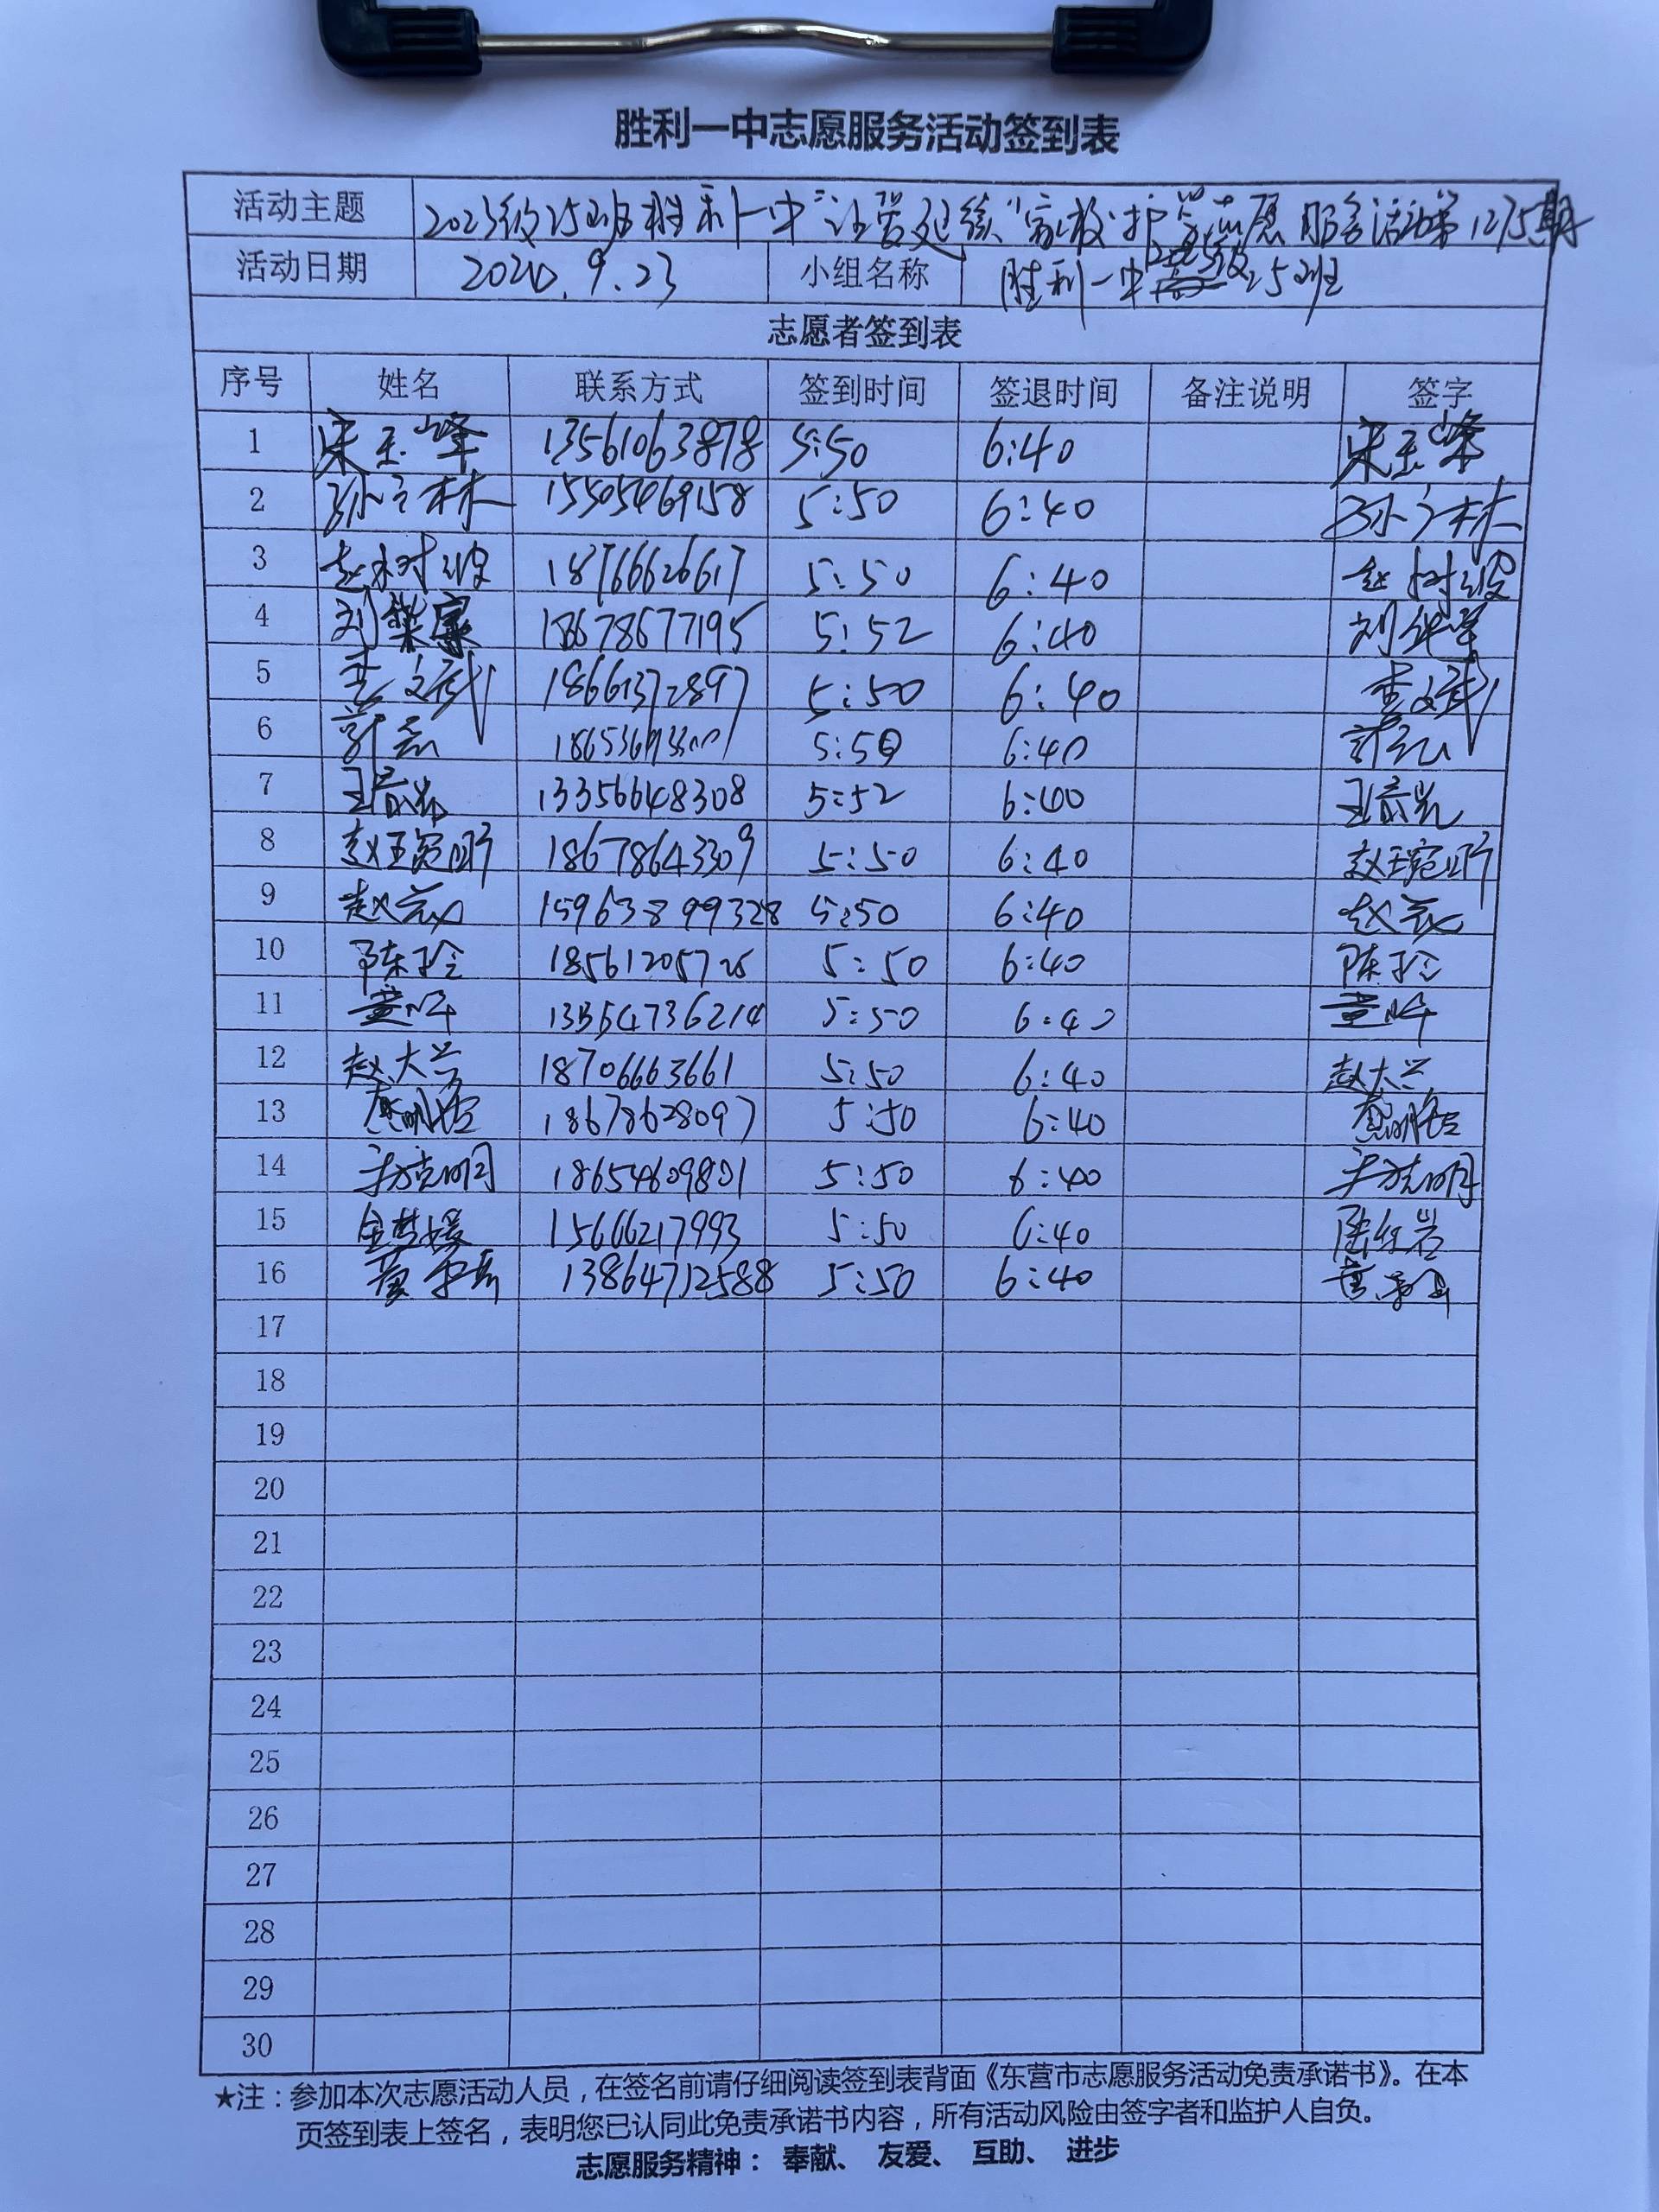 胜利一中志愿服务活动签到表
活动主题 2023级25班胜利一中"让爱延续"家校护学志愿服务活动第1275期
活动日期 2024.9.23 小组名称 胜利一中2023级25班
志愿者签到表
序号 姓名 联系方式 签到时间 签退时间 备注说明 签字
1 宋玉峰 13561063878 5:50 6:40 宋玉峰
2 孙立林 15505469158 5:50 6:40 孙立林
3 赵树波 18766626617 5:50 6:40 赵树波
4 刘 18678677195 5:52 6:40 刘
5 文武 18661372897 5:50 6:40 文武
6 5:50 6:40
7 王 13356648308 5:52 6:40 王
8 赵 18678643309 5:50 6:40 赵
9 赵 15963899328 5:50 6:40 赵
10 陈玲 5:50 6:40 陈玲
11 5:50 6:40
12 赵大兴 18706663661 5:50 6:40 赵大兴
13 18678628097 5:50 6:40
14 18654609801 5:50 6:40
15 15666217993 5:50 6:40 陈红岩
16 13864712588 5:50 6:40
17
18
19
20
21
22
23
24
25
26
27
28
29
30
★注：参加本次志愿活动人员，在签名前请仔细阅读签到表背面《东营市志愿服务活动免责承诺书》。在本
页签到表上签名，表明您已认同此免责承诺书内容，所有活动风险由签字者和监护人自负。
志愿服务精神： 奉献、 友爱、 互助、 进步